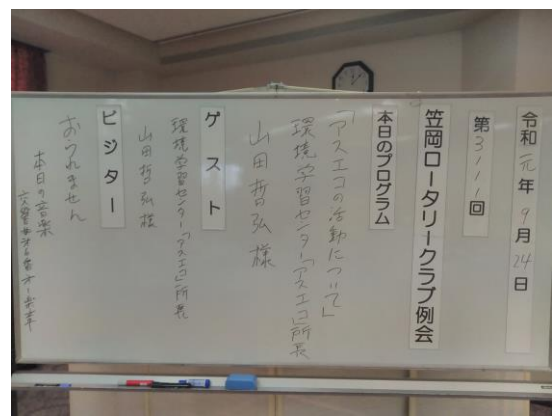 令和元年9月24日
第3111回
笠岡ロータリークラブ例会
本日のプログラム
「アスエコの活動について」
環境学習センター「アスエコ」所長
山田哲弘様
ゲスト
環境学習センター「アスエコ」所長
山田哲弘様
ビジター
おられません
本日の音楽